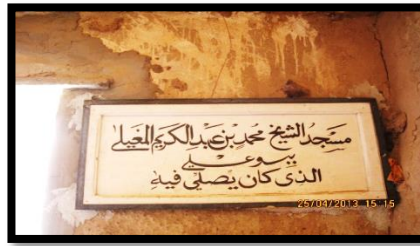 مسجدُ الشيخ محمد بن عبد الكريم المغيلي
ببوعلي
الذي كان يصلي فيهِ
25/04/2013 15:15